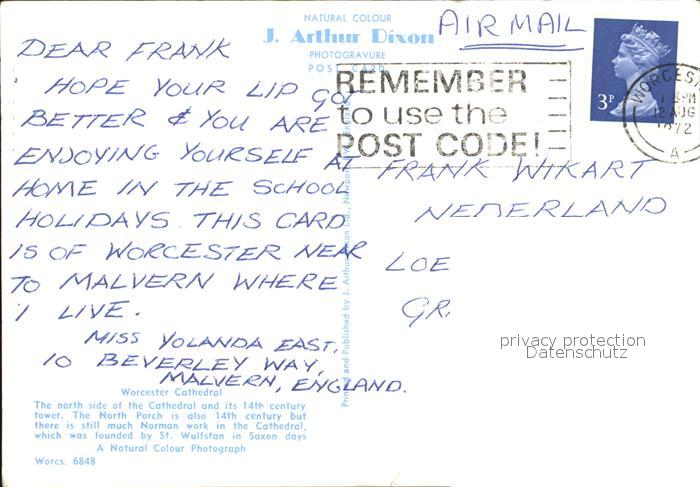 NATURAL COLOUR
J. Arthur Dixon
PHOTOGRAVURE
POST CARD
AIR MAIL
DEAR FRANK
HOPE YOUR LIP GOT
BETTER & YOU ARE
ENJOYING YOURSELF AT
HOME IN THE SCHOOL
HOLIDAYS. THIS CARD
IS OF WORCESTER NEAR
TO MALVERN WHERE
I LIVE.
MISS YOLANDA EAST,
10 BEVERLEY WAY,
MALVERN, ENGLAND.
REMEMBER
to use the
POST CODE!
3P
WORCEST
PM
12 AUG
1972
A
FRANK WIKART
NEDERLAND
LOE
GR
privacy protection
Datenschutz
Printed and Published by J. Arthur Dixon Ltd., Newport
Worcester Cathedral
The north side of the Cathedral and its 14th century
tower. The North Porch is also 14th century but
there is still much Norman work in the Cathedral,
which was founded by St. Wulfstan in Saxon days
A Natural Colour Photograph
Worcs. 6848